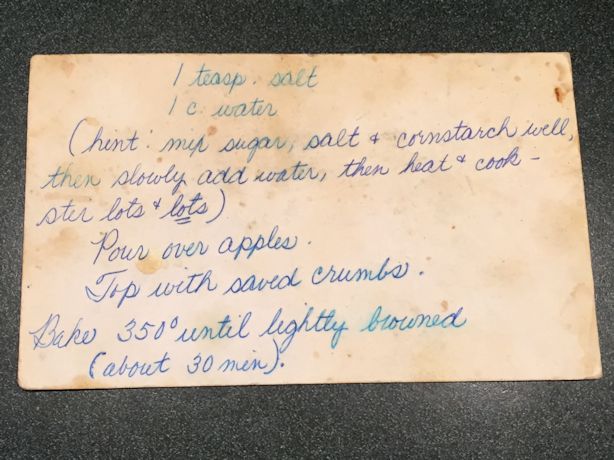 1 teasp. salt
1 c. water
(hint: mix sugar, salt & cornstarch well,
then slowly add water, then heat & cook -
ster lots & lots)
Pour over apples.
Top with saved crumbs.
Bake 350° until lightly browned
(about 30 min).